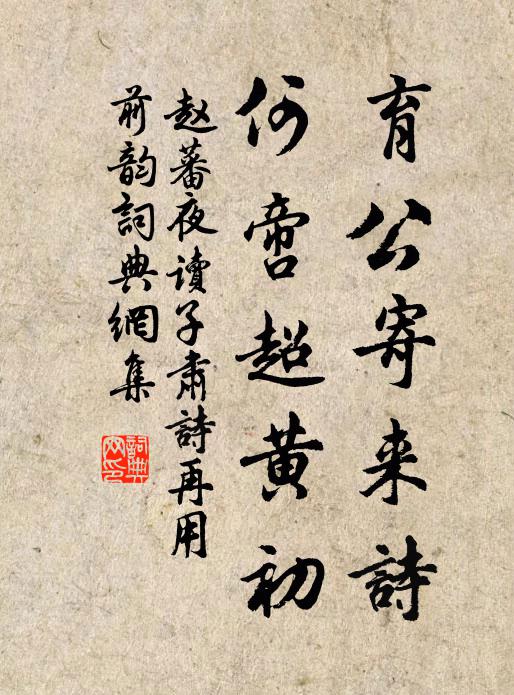 育公寄来詩
何啻超黄初
赵蕃夜讀子肅詩再用
前韵詞典網集
詞典
网印